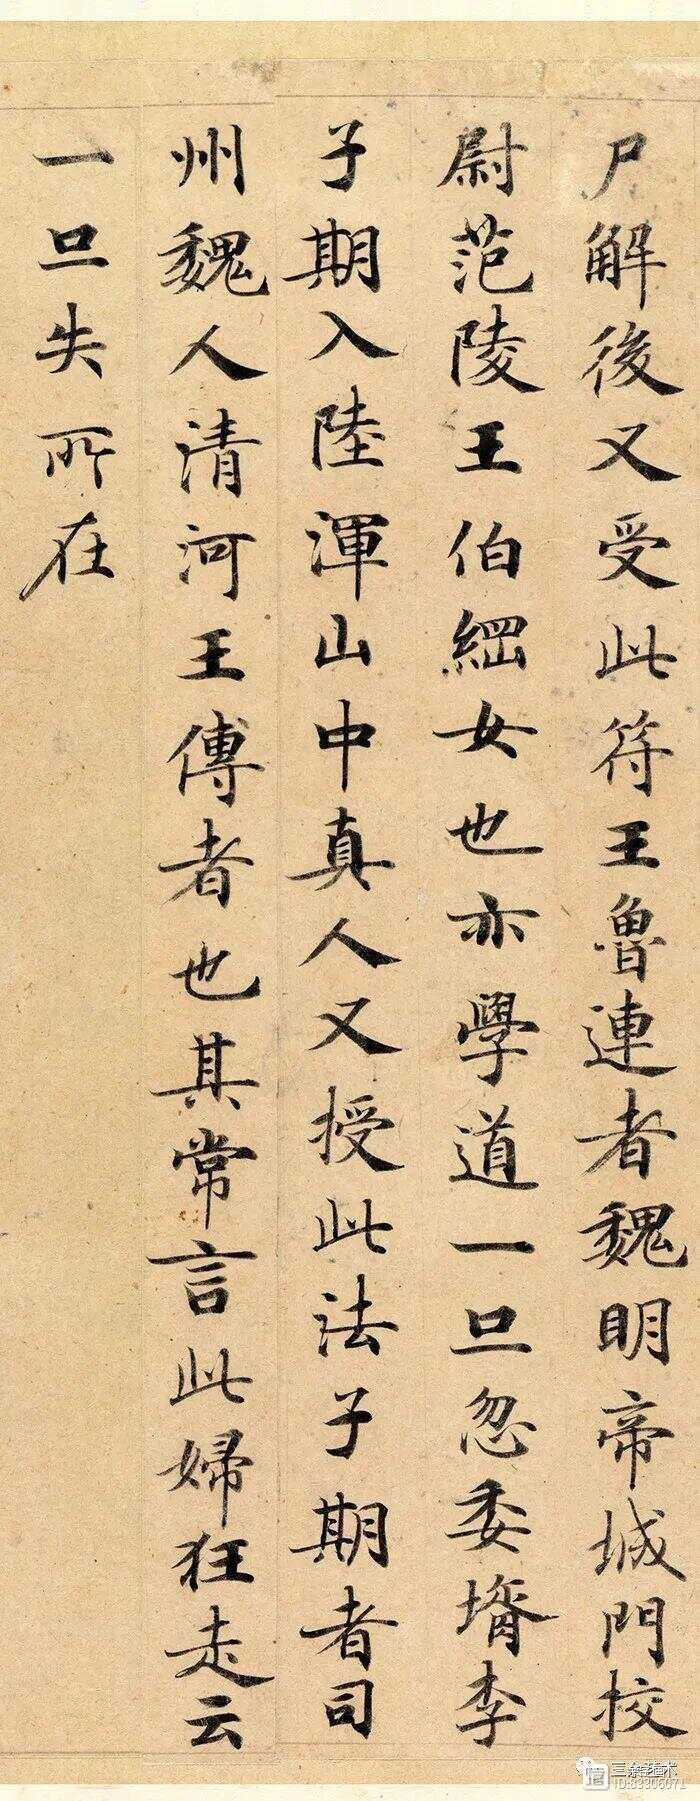 尸解後又受此符王魯連者魏明帝城門挍
尉范陵王伯綱女也亦學道一旦忽委壻李
子期入陸渾山中真人又授此法子期者司
州魏人清河王傅者也其常言此婦狂走云
一旦失所在
ID:83306071